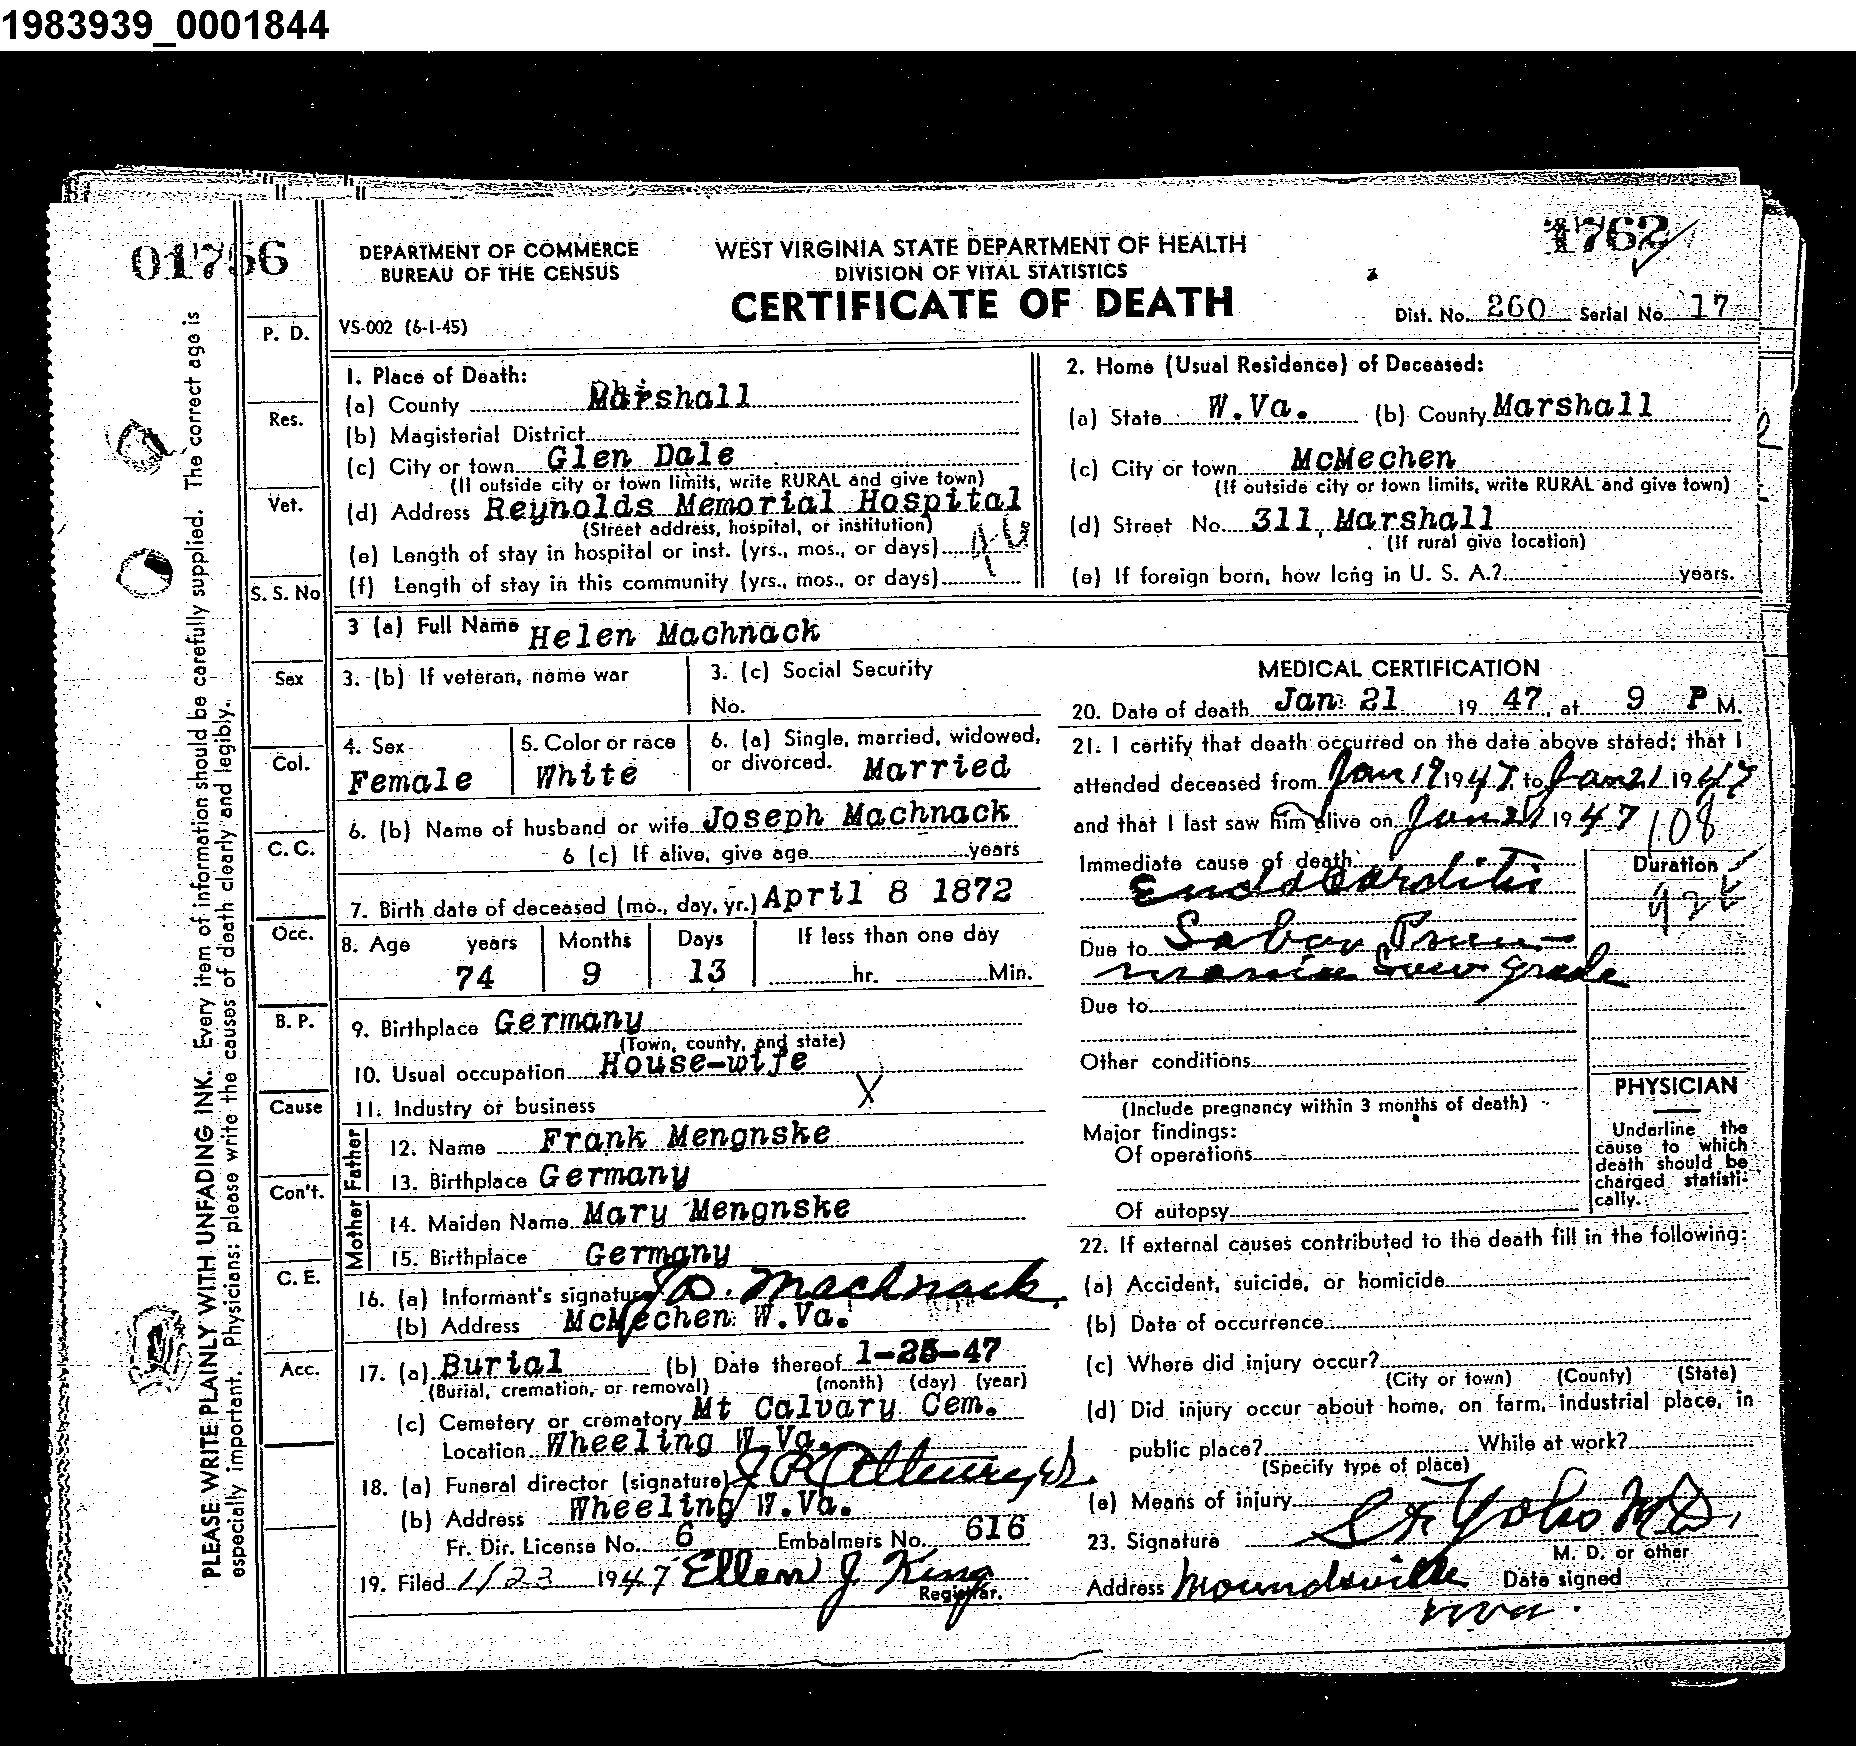 1983939_0001844
01756
1762
DEPARTMENT OF COMMERCE
BUREAU OF THE CENSUS
WEST VIRGINIA STATE DEPARTMENT OF HEALTH
DIVISION OF VITAL STATISTICS
CERTIFICATE OF DEATH
VS-002 (6-1-45)
Dist. No. 260 Serial No. 17
PLEASE WRITE PLAINLY WITH UNFADING INK. Every item of information should be carefully supplied. The correct age is
especially important. Physicians: please write the causes of death clearly and legibly.
P. D.
Res.
Vet.
S. S. No
Sex
Col.
C. C.
Occ.
B. P.
Cause
Con't.
C. E.
Acc.
1. Place of Death:
(a) County Marshall
(b) Magisterial District
(c) City or town Glen Dale
(If outside city or town limits, write RURAL and give town)
(d) Address Reynolds Memorial Hospital
(Street address, hospital, or institution)
(e) Length of stay in hospital or inst. (yrs., mos., or days)
(f) Length of stay in this community (yrs., mos., or days)
2. Home (Usual Residence) of Deceased:
(a) State W.Va. (b) County Marshall
(c) City or town McMechen
(If outside city or town limits, write RURAL and give town)
(d) Street No. 311, Marshall
(If rural give location)
(e) If foreign born, how long in U. S. A.? years.
3 (a) Full Name Helen Machnack
3. (b) If veteran, name war
3. (c) Social Security
No.
4. Sex
Female
5. Color or race
White
6. (a) Single, married, widowed,
or divorced. Married
6. (b) Name of husband or wife Joseph Machnack
6 (c) If alive, give age years
7. Birth date of deceased (mo., day, yr.) April 8 1872
8. Age years Months Days If less than one day
74 9 13 hr. Min.
9. Birthplace Germany
(Town, county, and state)
10. Usual occupation House-wife
11. Industry or business X
Father
12. Name Frank Mengnske
13. Birthplace Germany
Mother
14. Maiden Name Mary Mengnske
15. Birthplace Germany
16. (a) Informant's signature Machnack
(b) Address McMechen W.Va.
17. (a) Burial (b) Date thereof 1-25-47
(Burial, cremation, or removal) (month) (day) (year)
(c) Cemetery or crematory Mt Calvary Cem.
Location Wheeling W.Va.
18. (a) Funeral director (signature)
(b) Address Wheeling W.Va.
Fr. Dir. License No. 6 Embalmers No. 616
19. Filed 1/23 1947 Ellen J King
Registrar.
MEDICAL CERTIFICATION
20. Date of death Jan. 21 19 47, at 9 P M.
21. I certify that death occurred on the date above stated; that I
attended deceased from Jan 19 1947, to Jan 21 1947
and that I last saw him alive on Jan 21 1947
108
Immediate cause of death
Endocarditis
Duration
92
Due to Lobar Pneu-
monia Low grade
Due to
Other conditions
(Include pregnancy within 3 months of death)
Major findings:
Of operations
Of autopsy
PHYSICIAN
Underline the
cause to which
death should be
charged statisti-
cally.
22. If external causes contributed to the death fill in the following:
(a) Accident, suicide, or homicide
(b) Date of occurrence
(c) Where did injury occur?
(City or town) (County) (State)
(d) Did injury occur about home, on farm, industrial place, in
public place? While at work?
(Specify type of place)
(e) Means of injury
23. Signature Yoho MD.
M. D. or other
Address Moundsville Date signed
W Va.